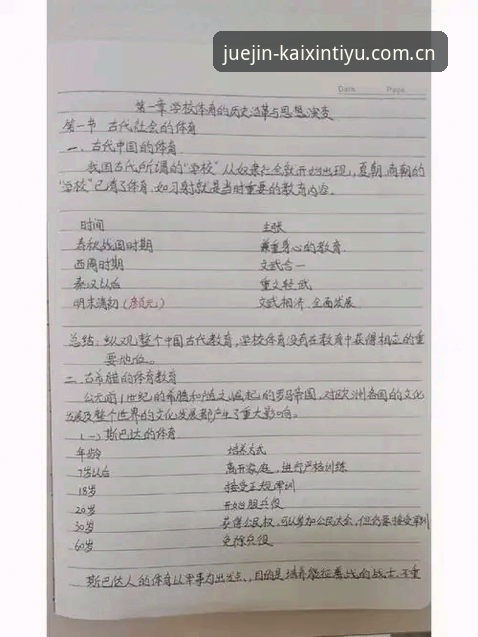 juejin-kaixintiyu.com.cn
Date. Page.
第一章 学校体育的历史沿革与思想演变
第一节 古代社会的体育
一、古代中国的体育
我国古代所谓的"学校"从奴隶社会就开始出现,夏朝、商朝的
"学校"已有了体育,如习射就是当时重要的教育内容。
时间 主张
春秋战国时期 兼重身心的教育
西周时期 文武合一
秦汉以后 重文轻武
明末清初(颜元) 文武相济 全面发展
总结:纵观整个中国古代教育,学校体育没有在教育中获得相应的重
要地位。
二、古希腊的体育教育
公元前1世纪的希腊和随之崛起的罗马帝国,对欧洲各国的文化
发展及整个世界的文化发展都产生了重大影响。
(一)斯巴达的体育
年龄 培养方式
7岁以后 离开家庭,进行严格训练
18岁 接受正规军训
20岁 开始服兵役
30岁 获得公民权,可以参加公民大会,但仍要接受军训
60岁 免除兵役
斯巴达人的体育以军事为出发点,目的是培养能征善战的战士,不重